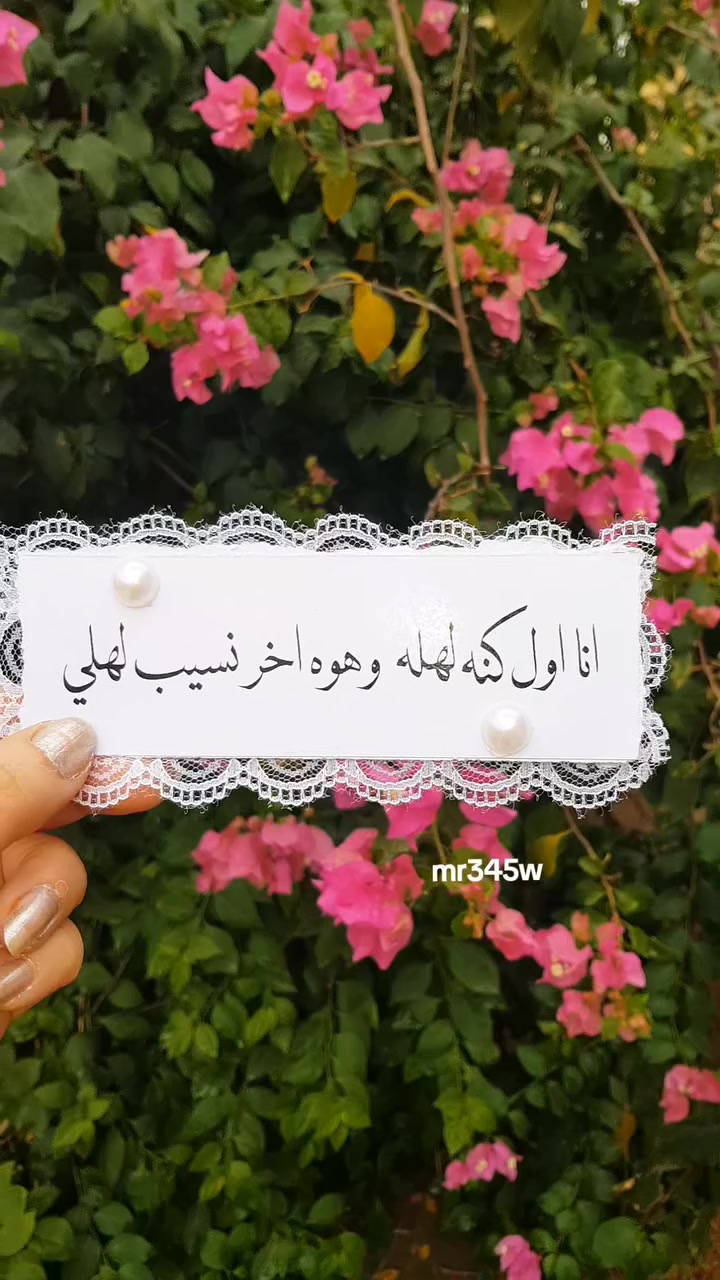 انا اول كنه لهله وهوه اخر نسيب لهلي
mr345w